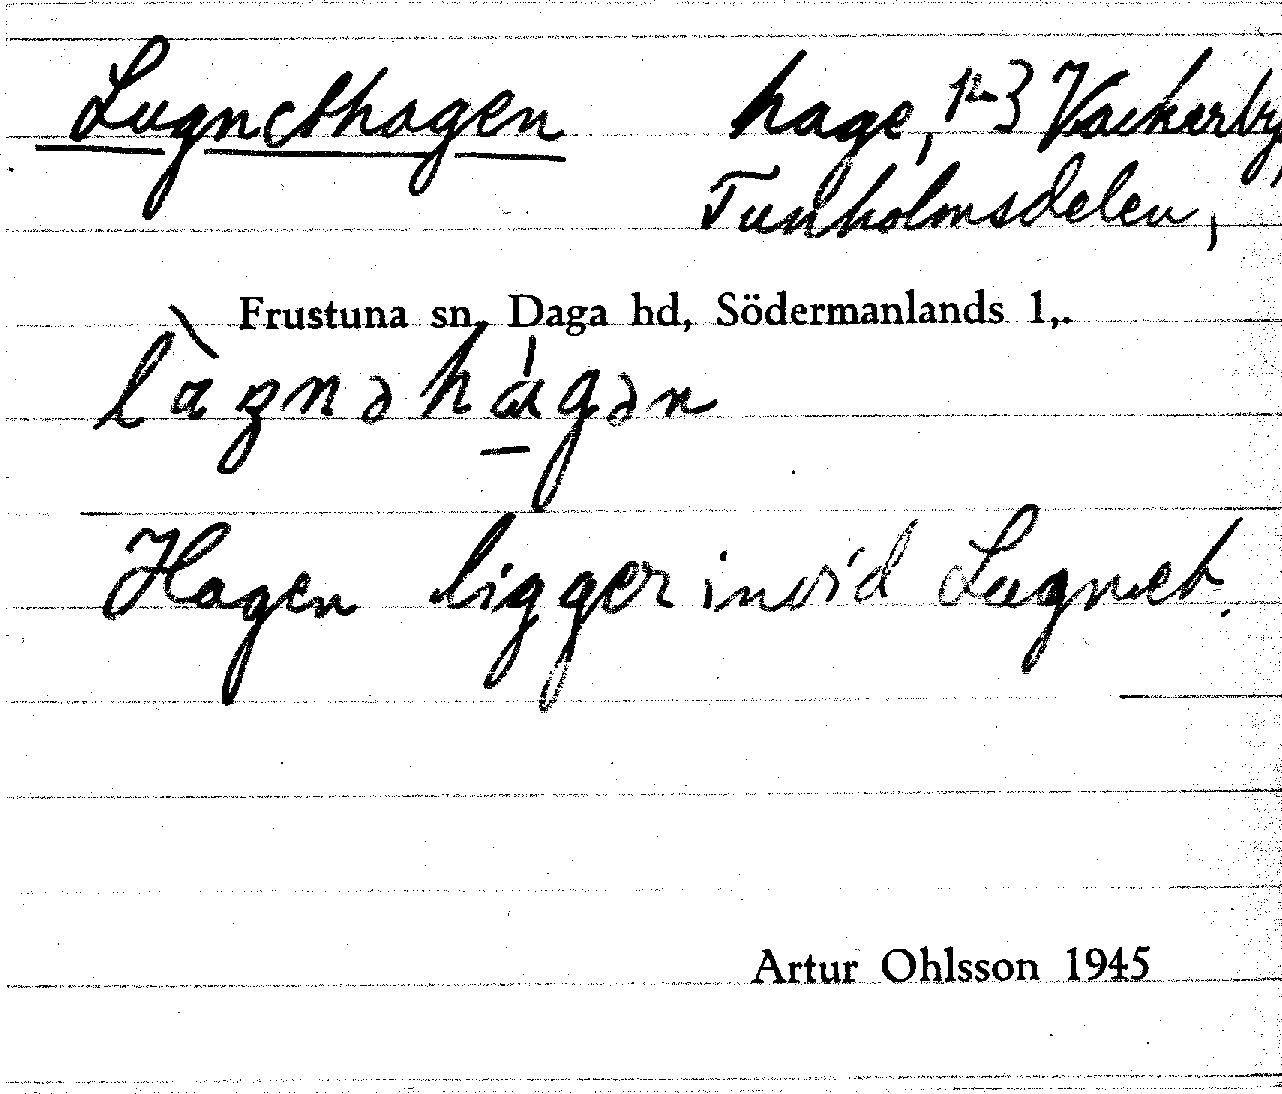 Lugnethagen hage, 1-3 Vackerby,
Tunholmsdelen,
Frustuna sn, Daga hd, Södermanlands l,.
Hagen ligger invid Lugnet.
Artur Ohlsson 1945